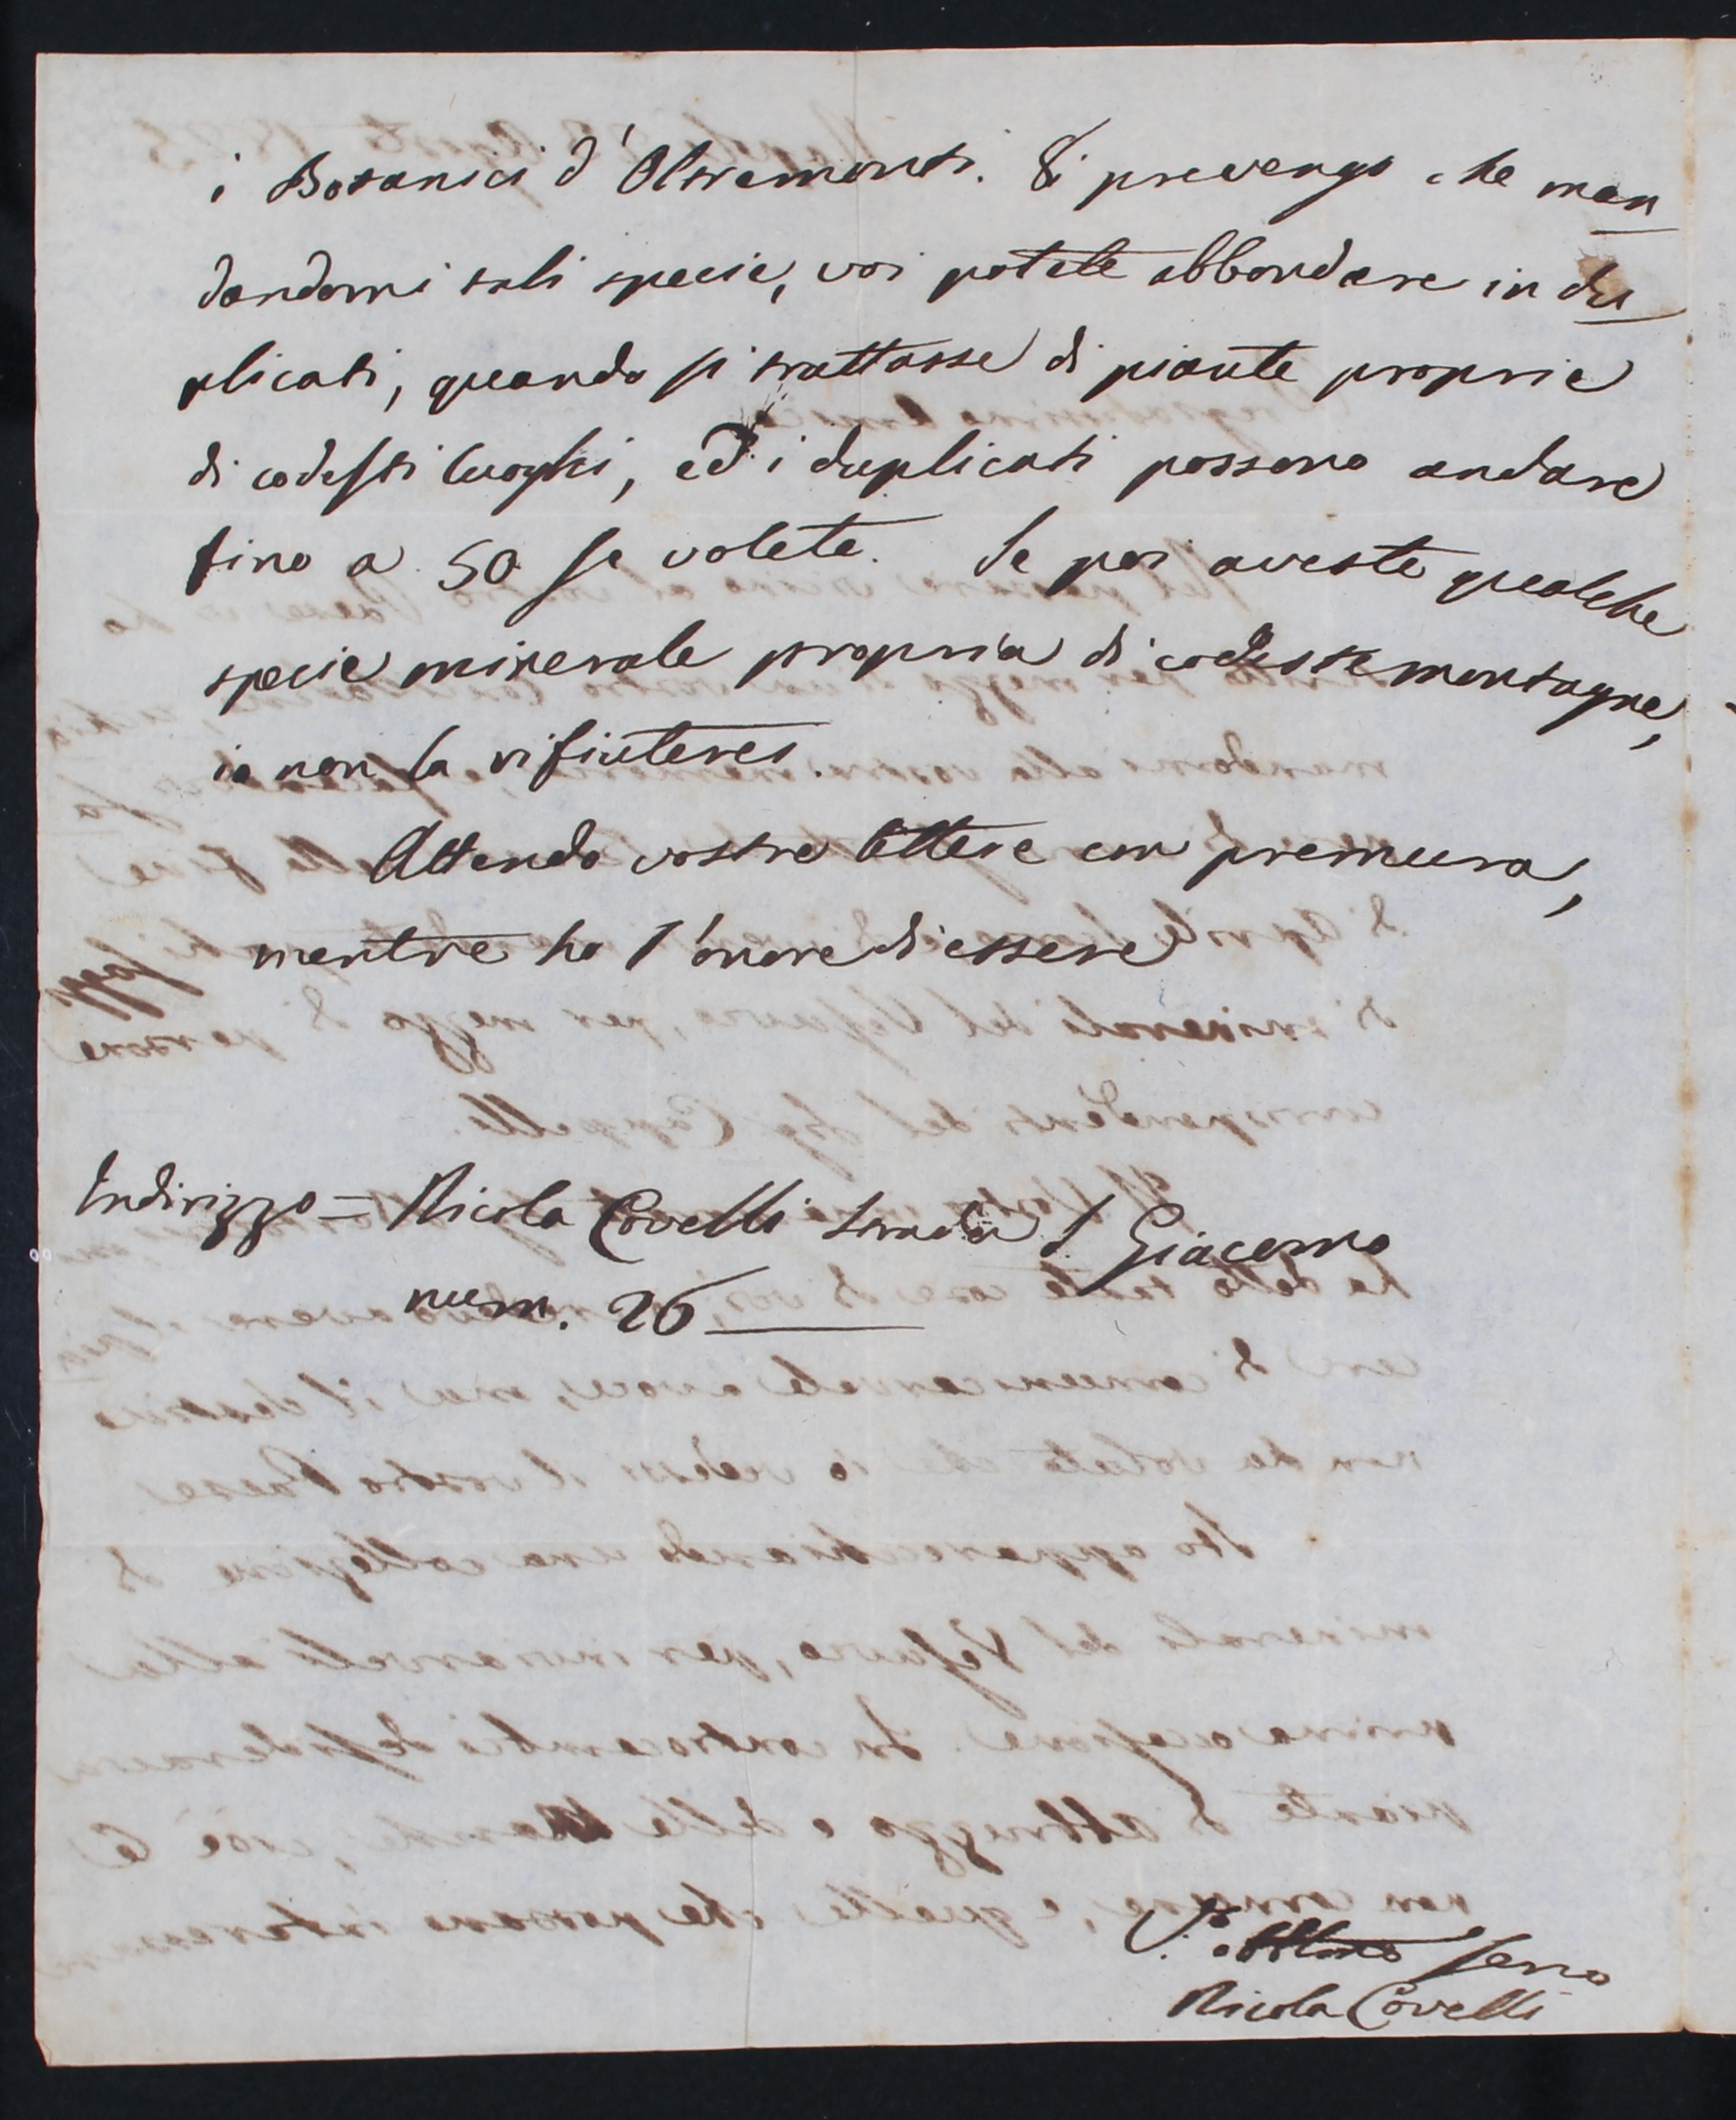 i Botanici d'Oltremonti. Vi prevengo che man
dandomi tali specie, voi potete abbondare in du
plicati, quando si trattasse di piante proprie
di codesti luoghi, ed i duplicati possono andare
fino a 50 se volete. Se poi aveste qualche
specie minerale propria di codeste montagne,
io non la rifiuterei.
Attendo vostre lettere con premura,
mentre ho l'onore di essere
Indirizzo = Nicola Covelli Strada S Giacomo
num. 26
V. obbl.mo servo
Nicola Covelli